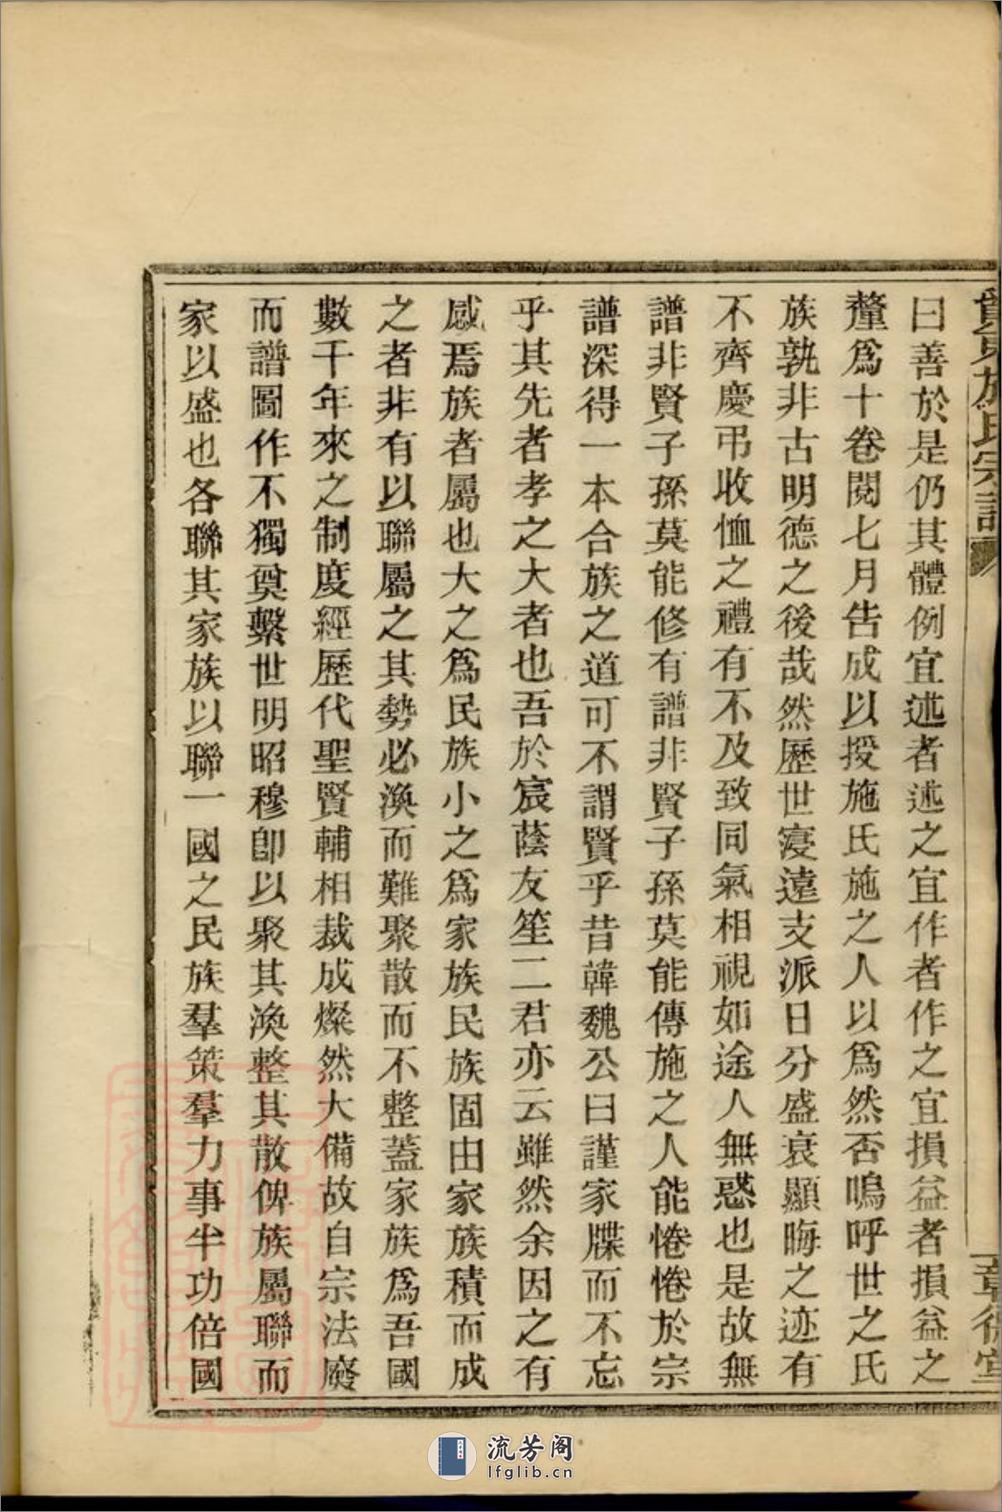 曰善於是仍其體例宜述者述之宜作者作之宜損益者損益之
釐爲十卷閱七月告成以授施氏施之人以爲然否嗚呼世之氏
族孰非古明德之後哉然歷世寖遠支派日分盛衰顯晦之迹有
不齊慶弔收恤之禮有不及致同氣相視如途人無惑也是故無
譜非賢子孫莫能修有譜非賢子孫莫能傳施之人能惓惓於宗
譜深得一本合族之道可不謂賢乎昔韓魏公曰謹家牒而不忘
乎其先者孝之大者也吾於宸蔭友笙二君亦云雖然余因之有
感焉族者屬也大之爲民族小之爲家族民族固由家族積而成
之者非有以聯屬之其勢必渙而難聚散而不整蓋家族爲吾國
數千年來之制度經歷代聖賢輔相裁成燦然大備故自宗法廢
而譜圖作不獨奠繫世明昭穆卽以聚其渙整其散俾族屬聯而
家以盛也各聯其家族以聯一國之民族羣策羣力事半功倍國
施氏宗譜
流芳阁
lfglib.cn